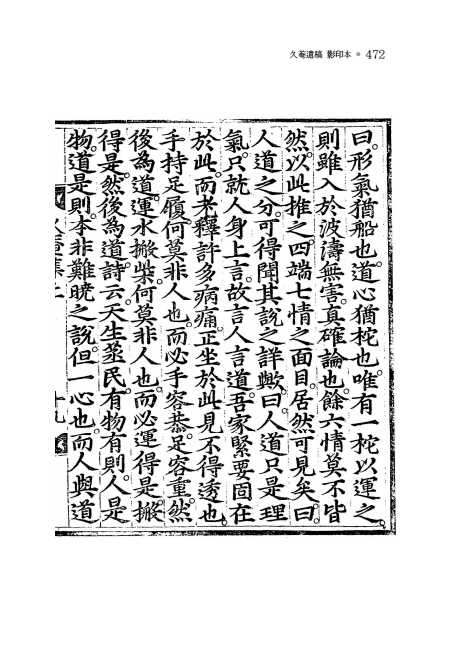 久菴遺稿 影印本 ● 472
曰。形氣猶船也。道心猶柁也。唯有一柁以運之。
則雖入於波濤無害。真確論也。餘六情莫不皆
然。以此推之。四端七情之面目。居然可見矣。曰。
人道之分。可得聞其說之詳歟。曰。人道只是理
氣。只就人身上言。故言人言道。吾家緊要固在
於此。而老釋許多病痛。正坐於此見不得透也。
手持足履。何莫非人也。而必手容恭。足容重。然
後為道。運水搬柴。何莫非人也。而必運得是搬
得是。然後為道。詩云。天生蒸民。有物有則。人是
物。道是則。本非難曉之說。但一心也。而人與道